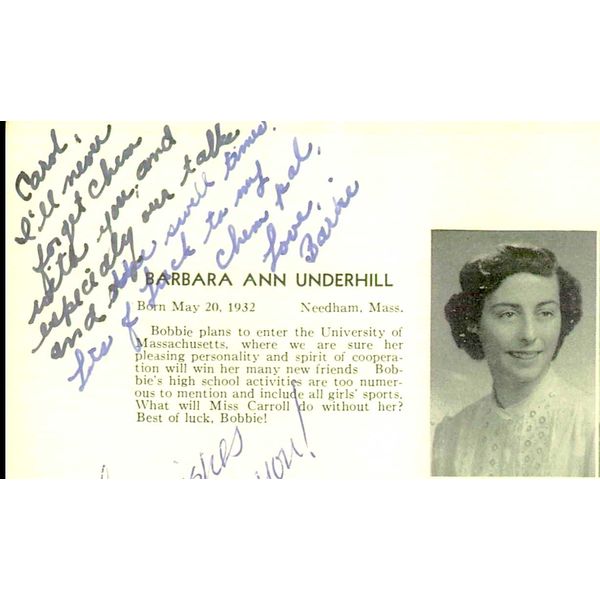 Carol,
I'll never
forget chem
with you, and
especially our talks
and swell times.
Lots of luck to my
chem pal,
Love,
Barbie
BARBARA ANN UNDERHILL
Born May 20, 1932 Needham, Mass.
Bobbie plans to enter the University of
Massachusetts, where we are sure her
pleasing personality and spirit of coopera-
tion will win her many new friends Bob-
bie's high school activities are too numer-
ous to mention and include all girls' sports.
What will Miss Carroll do without her?
Best of luck, Bobbie!
you!